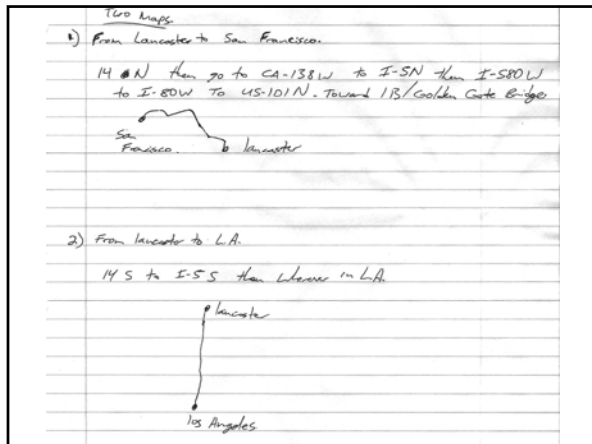 Two Maps.
1) From Lancaster to San Francisco.
14 N then go to CA-138W to I-5N then I-580W
to I-80W To US-101N. Toward 1B/Golden Gate Bridge
San
Francisco.
lancaster
2) From lancaster to L.A.
14 S to I-5 S then wherever in L.A.
lancaster
los Angeles